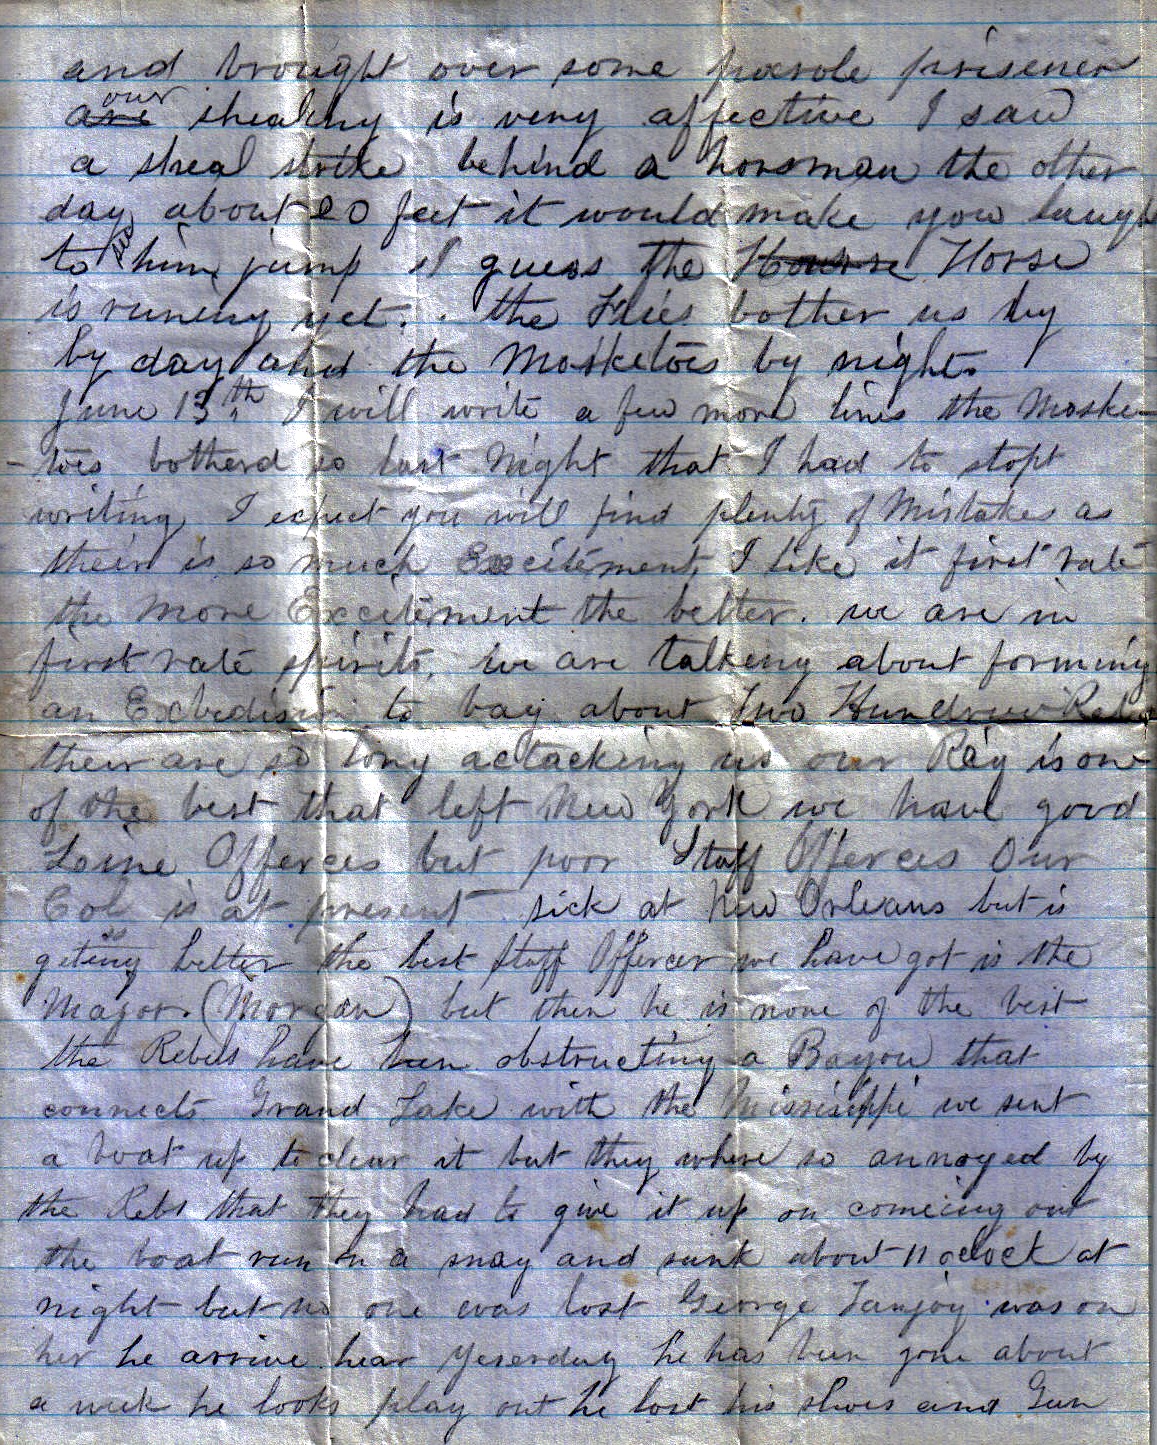 and brought over some parole prisener
are our shealing is very affective I saw
a sheal strike behind a horsman the other
day about 20 feet it would make you laugh
to see him jump I guess the Hourse Horse
is runing yet. the Flies bother us by
by day and the Mosketoes by night.
June 13th I will write a few more lines the Moske-
-toes botherd so last Night that I had to stopt
writing I expect you will find plenty of Mistakes as
their is so much Excitement I like it first rate
the More Excitement the better. we are in
first rate spirits, we are talking about forming
an Exbedision to bag about two Hundrew Rebs
their are so long actacking us our Reg is one
of the best that left New York we have good
Leine Offerces but poor Staff Offerces Our
Col is at present sick at New Orleans but is
geting better the best Staff Offercer we have got is the
Major. (Morgan) but then he is none of the best
the Rebels have been obstructing a Bayou that
connects Grand Lake with the Mississippi we sent
a boat up to clear it but they where so annoyed by
the Rebs that they had to give it up on comeing out
the boat run on a snag and sunk about 11 oclock at
night but no one was lost George was on
her he arrive hear Yeserday he has been gone about
a week he looks play out he lost his shoes and Gun